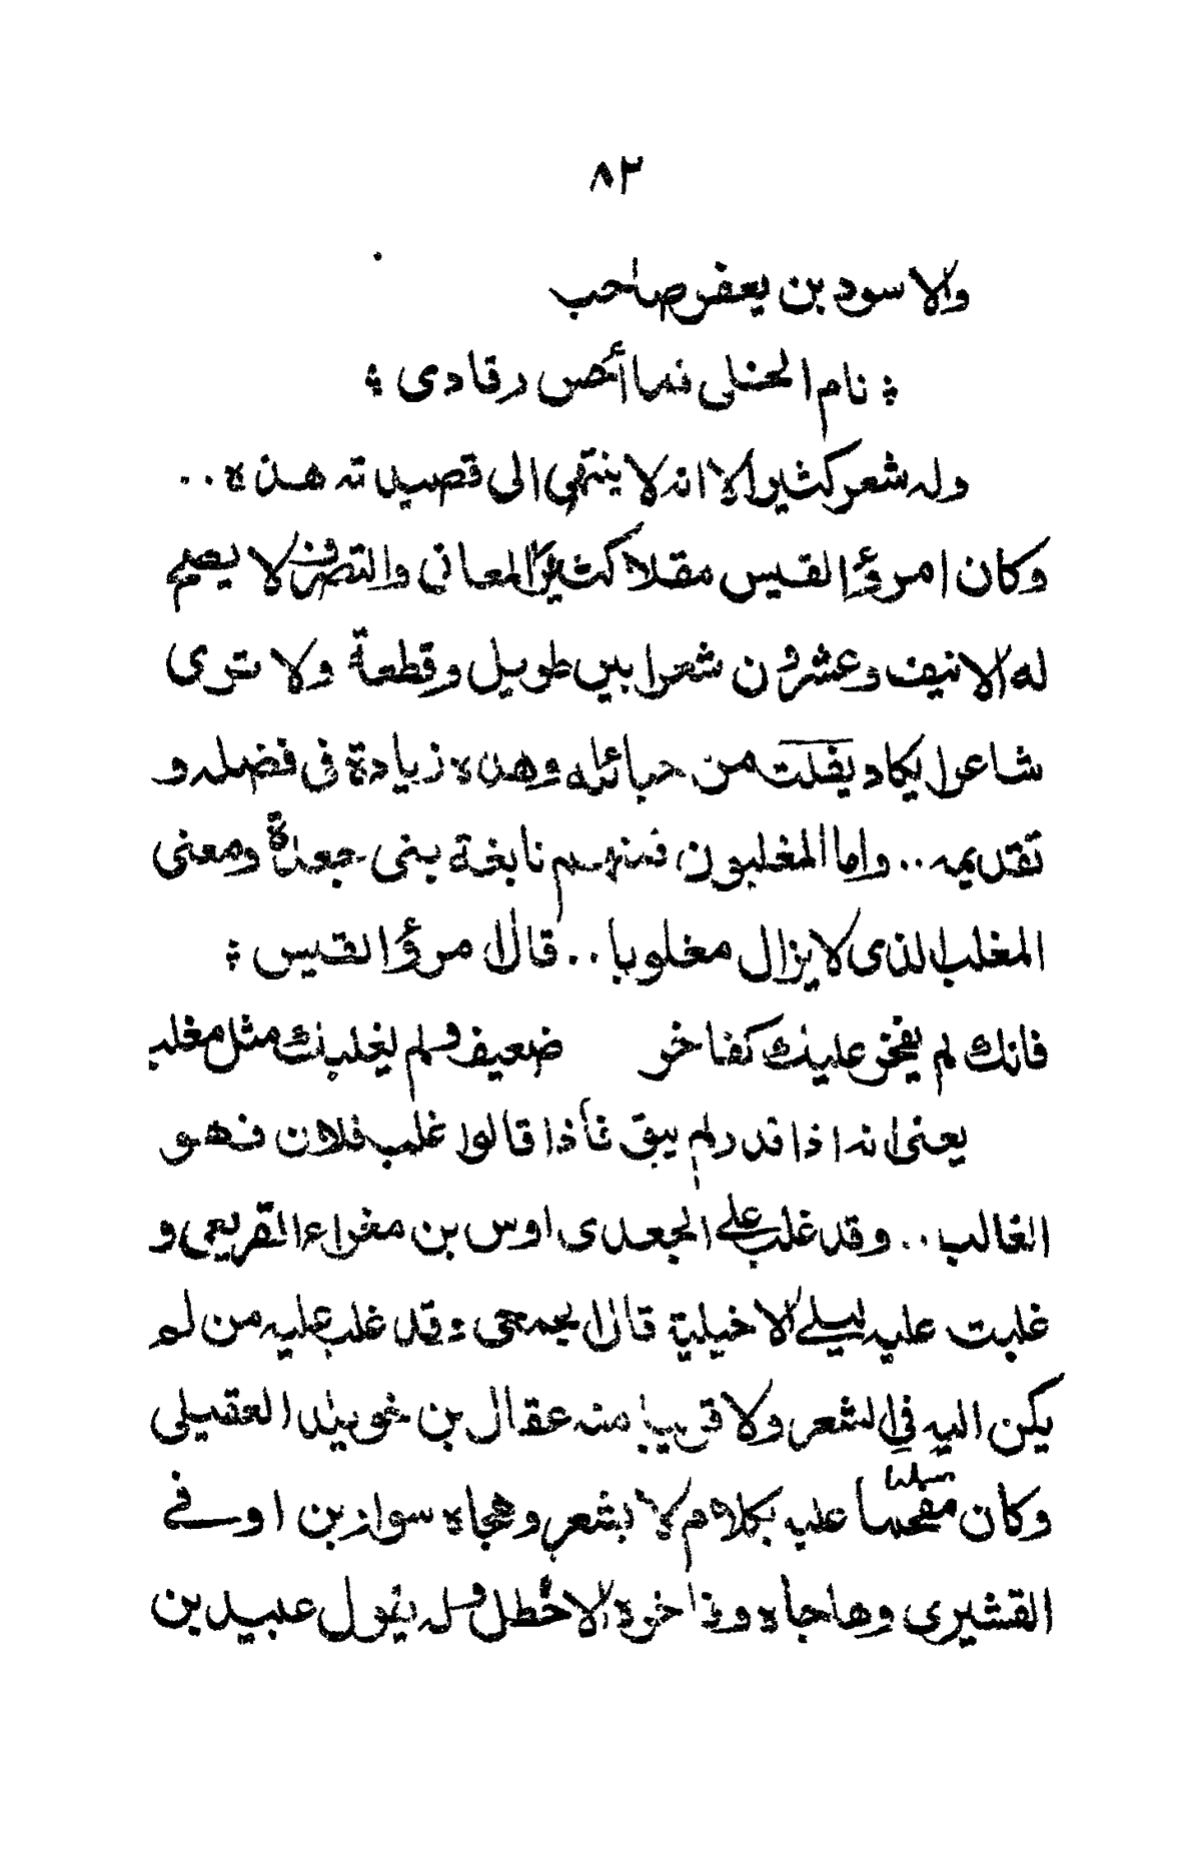 ٨٢
والاسود بن يعفر صاحب
؛ نام الخلى فما أحس رقادى ؛
وله شعر كثير الا انه لا ينتهى الى قصيدته هذه ..
وكان امرؤ القيس مقلا كثير المعانى والتصرف لا يصح
له الا نيف وعشرون شعرا بين طويل وقطعة ولا ترى
شاعرا يكاد يفلت من حبائله وهذه زيادة فى فضله و
تقديمه .. واما المغلبون فمنهم نابغة بنى جعدة ومعنى
المغلب الذى لا يزال مغلوبا .. قال امرؤ القيس ؛
فانك لم يفخر عليك كفاخر ضعيف ولم يغلبك مثل مغلب
يعنى انه اذا قدر لم يبق فأذا قالوا غلب فلان فهو
الغالب .. وقد غلب على الجعدى اوس بن مغراء القريعى و
غلبت عليه ليلى الاخيلية قال الجمحى ؛ وقد غلب عليه من لم
يكن اليه فى الشعر ولا قريبا منه عقال بن خويلد العقيلى
وكان مفحما عليه بكلام لا بشعر وهجاه سوار بن اوفى
القشيرى وهاجاه وفاخره الاخطل وله يقول عبيد بن